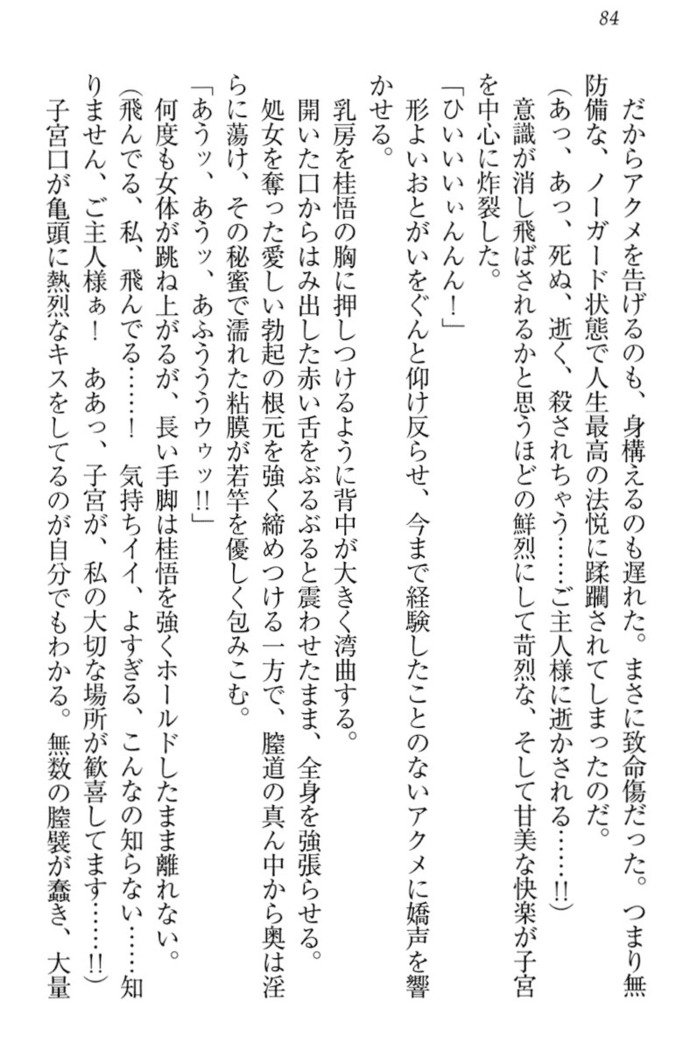 84
だからアクメを告げるのも、身構えるのも遅れた。まさに致命傷だった。つまり無
防備な、ノーガード状態で人生最高の法悦に蹂躙されてしまったのだ。
(あっ、あっ、死ぬ、逝く、殺されちゃう……ご主人様に逝かされる……!!)
意識が消し飛ばされるかと思うほどの鮮烈にして苛烈な、そして甘美な快楽が子宮
を中心に炸裂した。
「ひいいいぃんんん!」
形よいおとがいをぐんと仰け反らせ、今まで経験したことのないアクメに嬌声を響
かせる。
乳房を桂悟の胸に押しつけるように背中が大きく湾曲する。
開いた口からはみ出した赤い舌をぶるぶると震わせたまま、全身を強張らせる。
処女を奪った愛しい勃起の根元を強く締めつける一方で、膣道の真ん中から奥は淫
らに蕩け、その秘蜜で濡れた粘膜が若竿を優しく包みこむ。
「あうッ、あうッ、あふうううウゥッ!!」
何度も女体が跳ね上がるが、長い手脚は桂悟を強くホールドしたまま離れない。
(飛んでる、私、飛んでる……! 気持ちイイ、よすぎる、こんなの知らない……知
りません、ご主人様ぁ! ああっ、子宮が、私の大切な場所が歓喜してます……!!)
子宮口が亀頭に熱烈なキスをしてるのが自分でもわかる。無数の膣襞が蠢き、大量